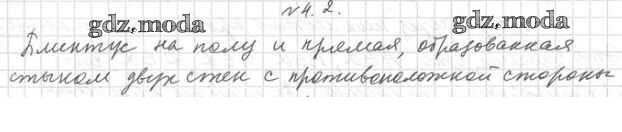 №4.2.
gdz.moda gdz.moda
Плинтус на полу и прямая, образованная
стыком двух стен с противоположной стороны